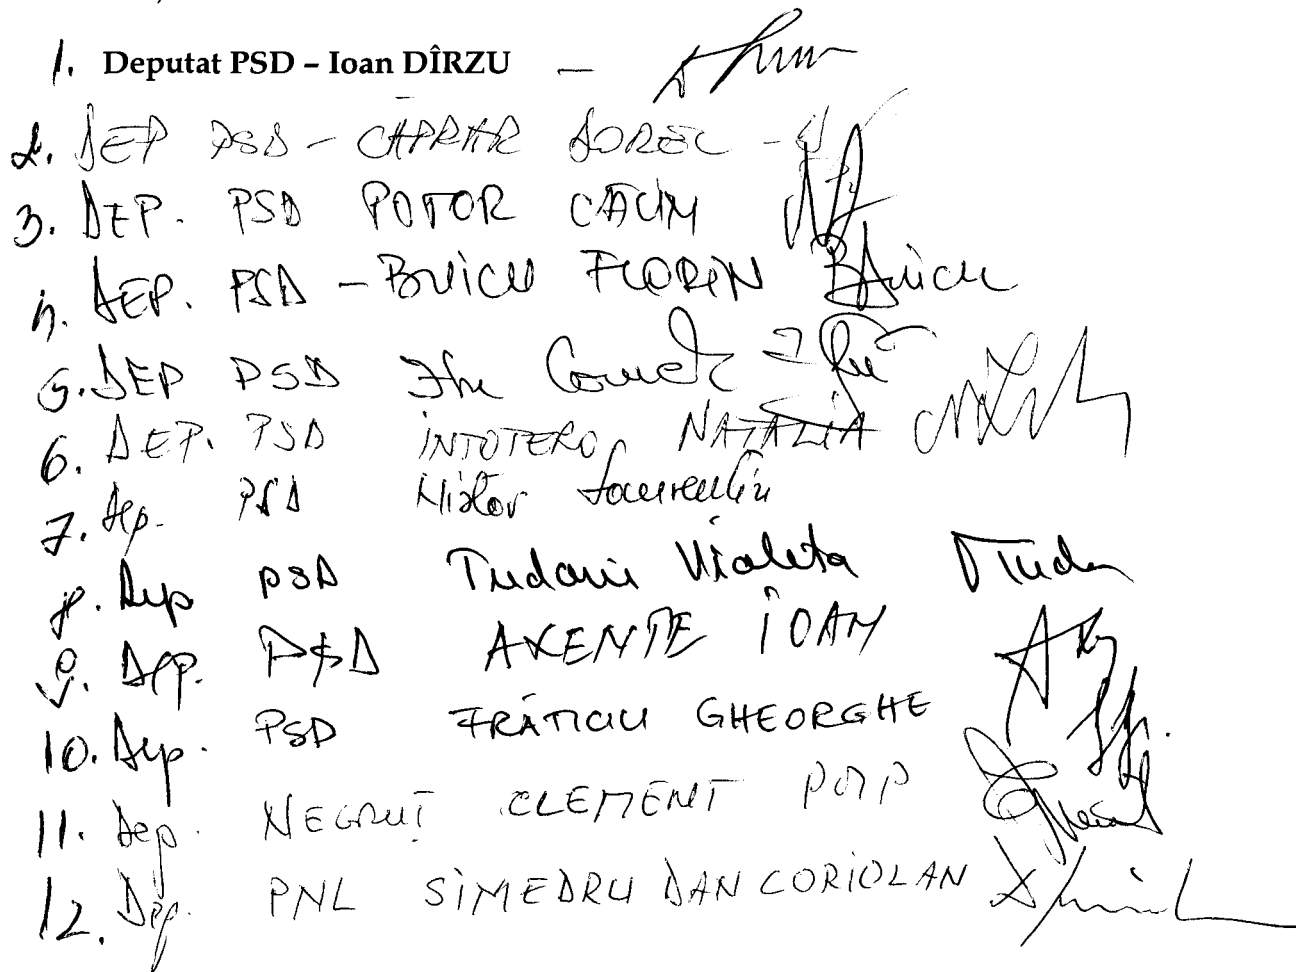 1. Deputat PSD – Ioan DÎRZU –
2. DEP PSD – CĂPRAR DOREL –
3. DEP. PSD POTOR CĂLIN
4. DEP. PSD – BUICU FLORIN BFuicu
5. DEP PSD Itu Cornel
6. DEP. PSD INTOTERO NATALIA
7. Dep. PSD Nistor Laurențiu
8. Dep PSD Tudorie Violeta VTudor
9. Dep. PSD AXENTE IOAN
10. Dep. PSD FRĂTICIU GHEORGHE
11. Dep. NEGRUȚ CLEMENT PMP
12. Dep. PNL SIMEDRU DAN CORIOLAN